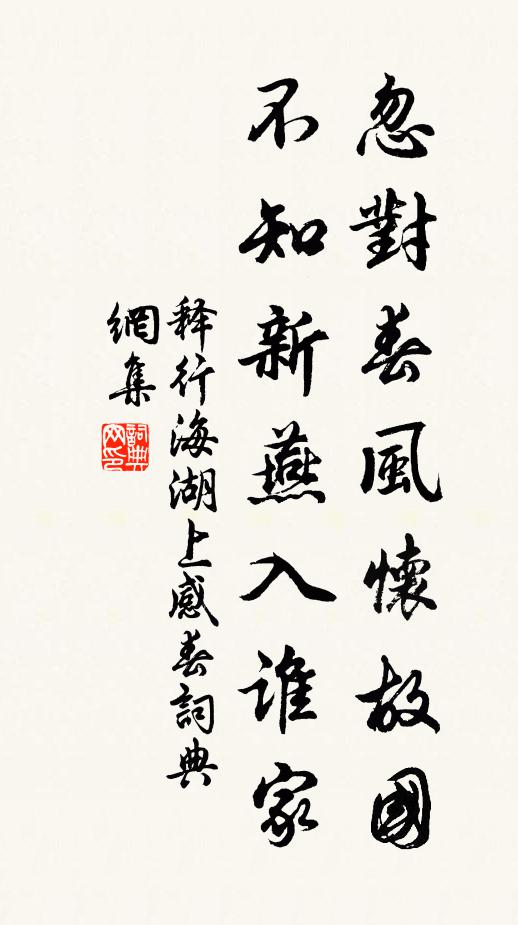 忽對春風懷故國
不知新燕入誰家
释行海湖上感春詞典
網集
詞典
网印